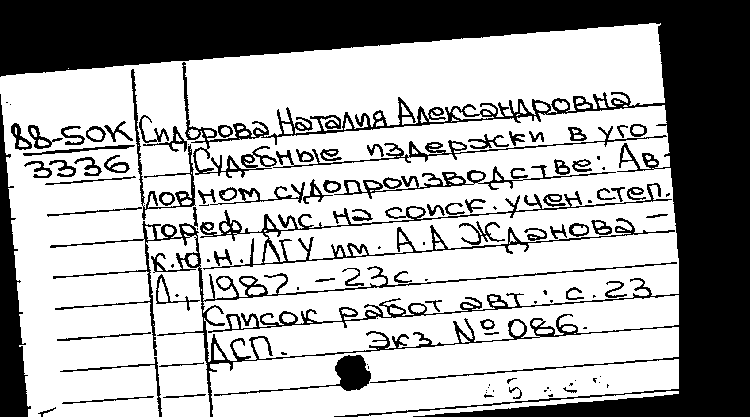 88-50К Сидорова, Наталия Александровна.
3336 Судебные издержки в уго-
ловном судопроизводстве: Ав-
тореф. дис. на соиск. учен. степ.
к.ю.н. / ЛГУ им. А.А Жданова. –
Л., 1987. – 23с.
Список работ авт.: с. 23
ДСП. Экз. № 086.